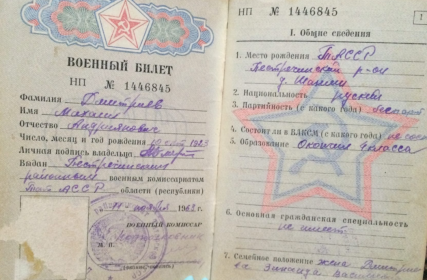 ВОЕННЫЙ БИЛЕТ
НП № 1446845
Фамилия Дмитриев
Имя
Отчество Андриянович
Число, месяц и год рождения 1923
Личная подпись владельца
Выдан Пестречинским
районным военным комиссариатом
Тат АССР области (республики)
1963 г.
ВОЕННЫЙ КОМИССАР
М. п.
НП № 1446845
1
I. Общие сведения
1. Место рождения ТАССР
Пестречинский р-он
д.
2. Национальность русский
3. Партийность (с какого года)
4. Состоял ли в ВЛКСМ (с какого года) не сост
5. Образование Окончил класса
6. Основная гражданская специальность
не имеет
7. Семейное положение жена
Зинаида